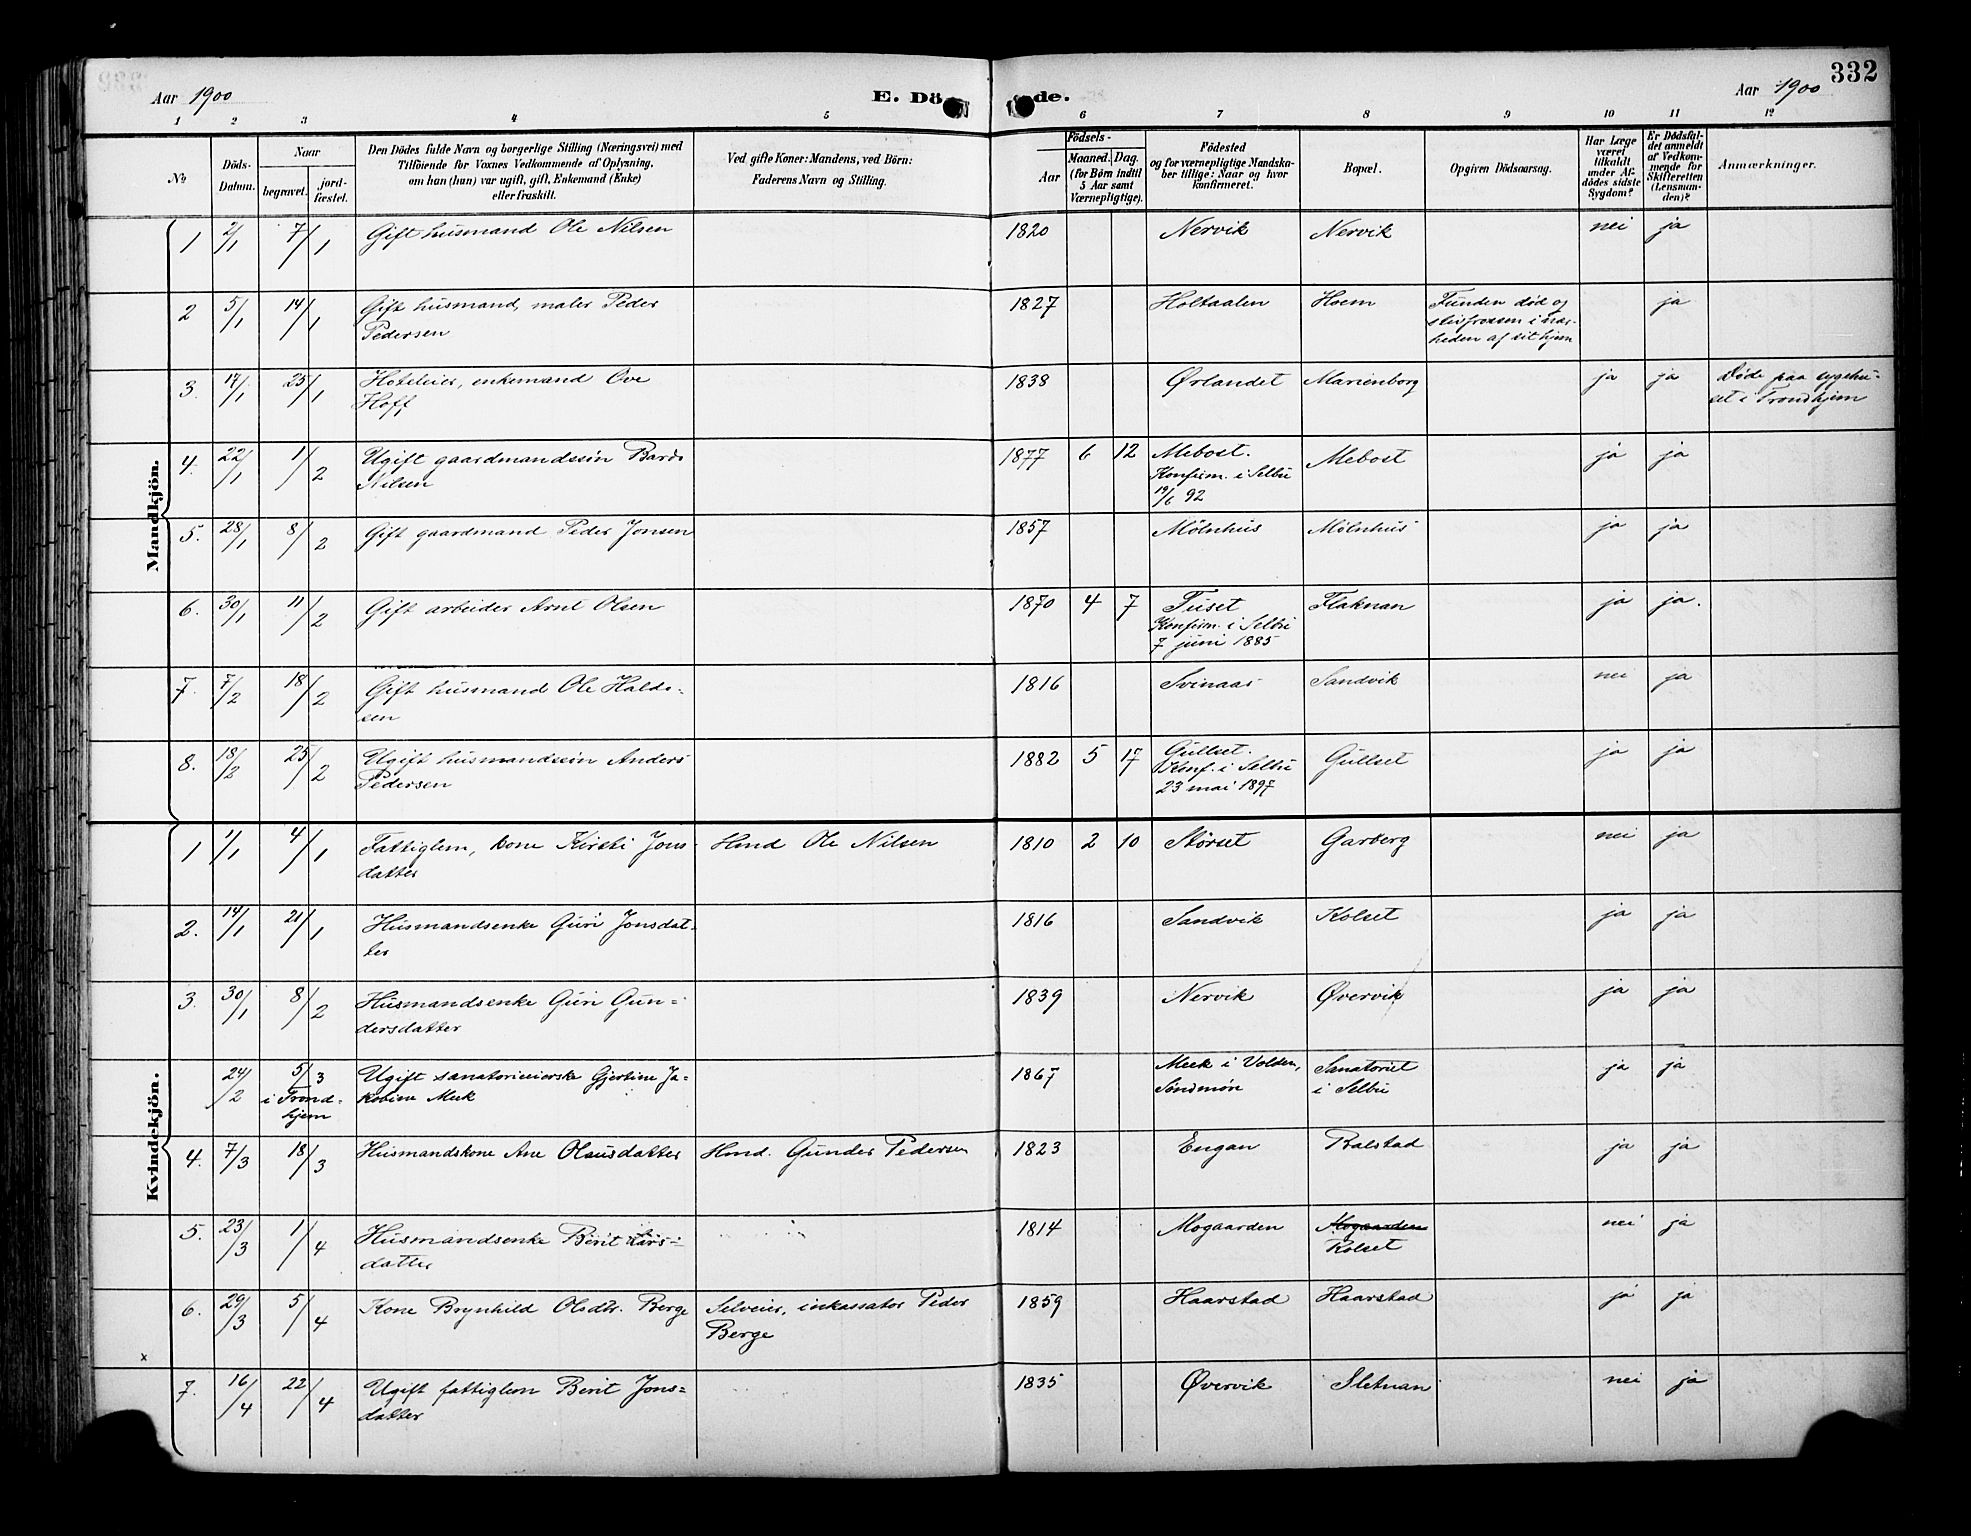 332
Aar 1900 E. Dö de. Aar 1900
1 2 3 4 5 6 7 8 9 10 11 12
No
Döds-Datum.
Naar
begravet.
jord-fæstet.
Den Dödes fulde Navn og borgerlige Stilling (Næringsvei) med
Tilföiende for Voxnes Vedkommende af Oplysning,
om han (hun) var ugift, gift, Enkemand (Enke)
eller fraskilt.
Ved gifte Koner: Mandens, ved Börn:
Faderens Navn og Stilling.
Födsels-
Aar
Maaned. Dag.
(for Börn indtil
5 Aar samt
Værnepligtige).
Födested
og for værnepligtige Mandska-
ber tillige: Naar og hvor
konfirmeret.
Bopæl.
Opgiven Dödsaarsag.
Har Læge
været
tilkaldt
under Af-
dödes sidste
Sygdom?
Er Dödsfal-
det anmeldt
af Vedkom-
mende for
Skifteretten
(Lensman-
den)?
Anmærkninger.
Mandkjön.
1 2/1 7/1 Gift husmand Ole Nilsen 1820 Nervik Nervik nei ja
2 5/1 14/1 Gift husmand, maler Peder
Pedersen 1827 Holtaalen Hoem Funden død og
stivfrossen i nær-
heden af sit hjem ja
3. 17/1 25/1 Hoteleier, enkemand Ove
Hoff 1838 Ørlandet Marienborg ja ja Døde paa sygehu-
set i Trondhjem
4. 22/1 1/2 Ugift gaardmandssøn Bard
Nilsen 1877 6 12 Mebost.
Konfirm. i Selbu
19/6 92 Mebost ja ja
5. 28/1 8/2 Gift gaardmand Peder Jonsen 1857 Mølnhus Mølnhus ja ja
6. 30/1 11/2 Gift arbeider Arnt Olsen 1870 4 7 Tuset
Konfirm. i Selbu
7 juni 1885 Flaknan ja ja.
7. 7/2 18/2 Gift husmand Ole Halds-
sen 1816 Svinaas Sandvik nei ja
8. 18/2 25/2 Ugift husmandssøn Anders
Pedersen 1882 5 17 Gullset.
Konf. i Selbu
23 mai 1897 Gullset ja ja
Kvindekjön.
1 1/1 4/1 Fattiglem, kone Kirsti Jons-
datter Hmd Ole Nilsen 1810 2 10 Størset Garberg nei ja
2. 14/1 21/1 Husmandsenke Guri Jonsdat-
ter 1816 Sandvik Kolset ja ja
3. 30/1 8/2 Husmandsenke Guri Gun-
dersdatter 1839 Nervik Øvervik ja ja
24/2 5/3
i Trond-
hjem Ugift sanatorieeierske Gjertine Ja-
kobine Meek 1867 Meek i Volden,
Søndmøre Sanatoriet
i Selbu ja ja
4. 7/3 18/3 Husmandskone Ane Olausdatter Hmd. Gunder Pedersen 1823 Engan Balstad ja ja
5. 23/3 1/4 Husmandsenke Berit Lars-
datter 1814 Mogaarden Mogaarden
Kolset nei ja
6. 29/3 5/4 Kone Brynhild Olsdtr. Berge Selveier, inkassator Peder
Berge 1859 Haarstad Haarstad ja ja
x
7. 16/4 22/4 Ugift fattiglem Berit Jons-
datter 1835 Øvervik Sletnan nei ja